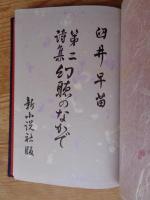 臼井早苗
第二詩集
幻聴のなかで
新小説社版